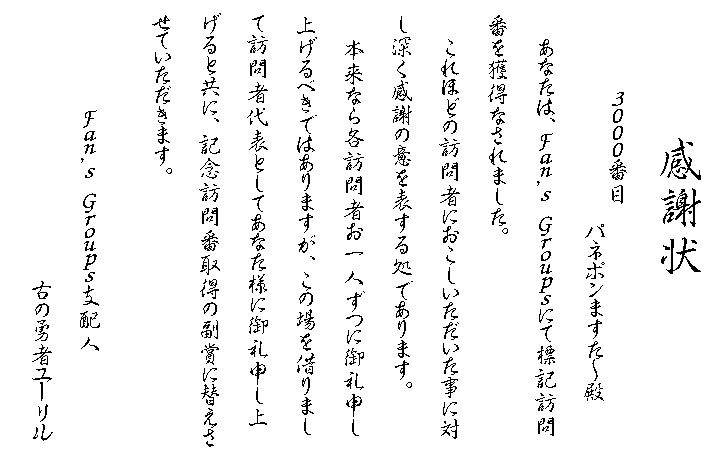 感謝状
3000番目
パネポンますた〜殿
あなたは、Fan's Groupsにて標記訪問
番を獲得なされました。
これほどの訪問者におこしいただいた事に対
し深く感謝の意を表する処であります。
本来なら各訪問者お一人ずつに御礼申し
上げるべきではありますが、この場を借りまし
て訪問者代表としてあなた様に御礼申し上
げると共に、記念訪問番取得の副賞に替えさ
せていただきます。
Fan's Groups支配人
古の勇者ユーリル